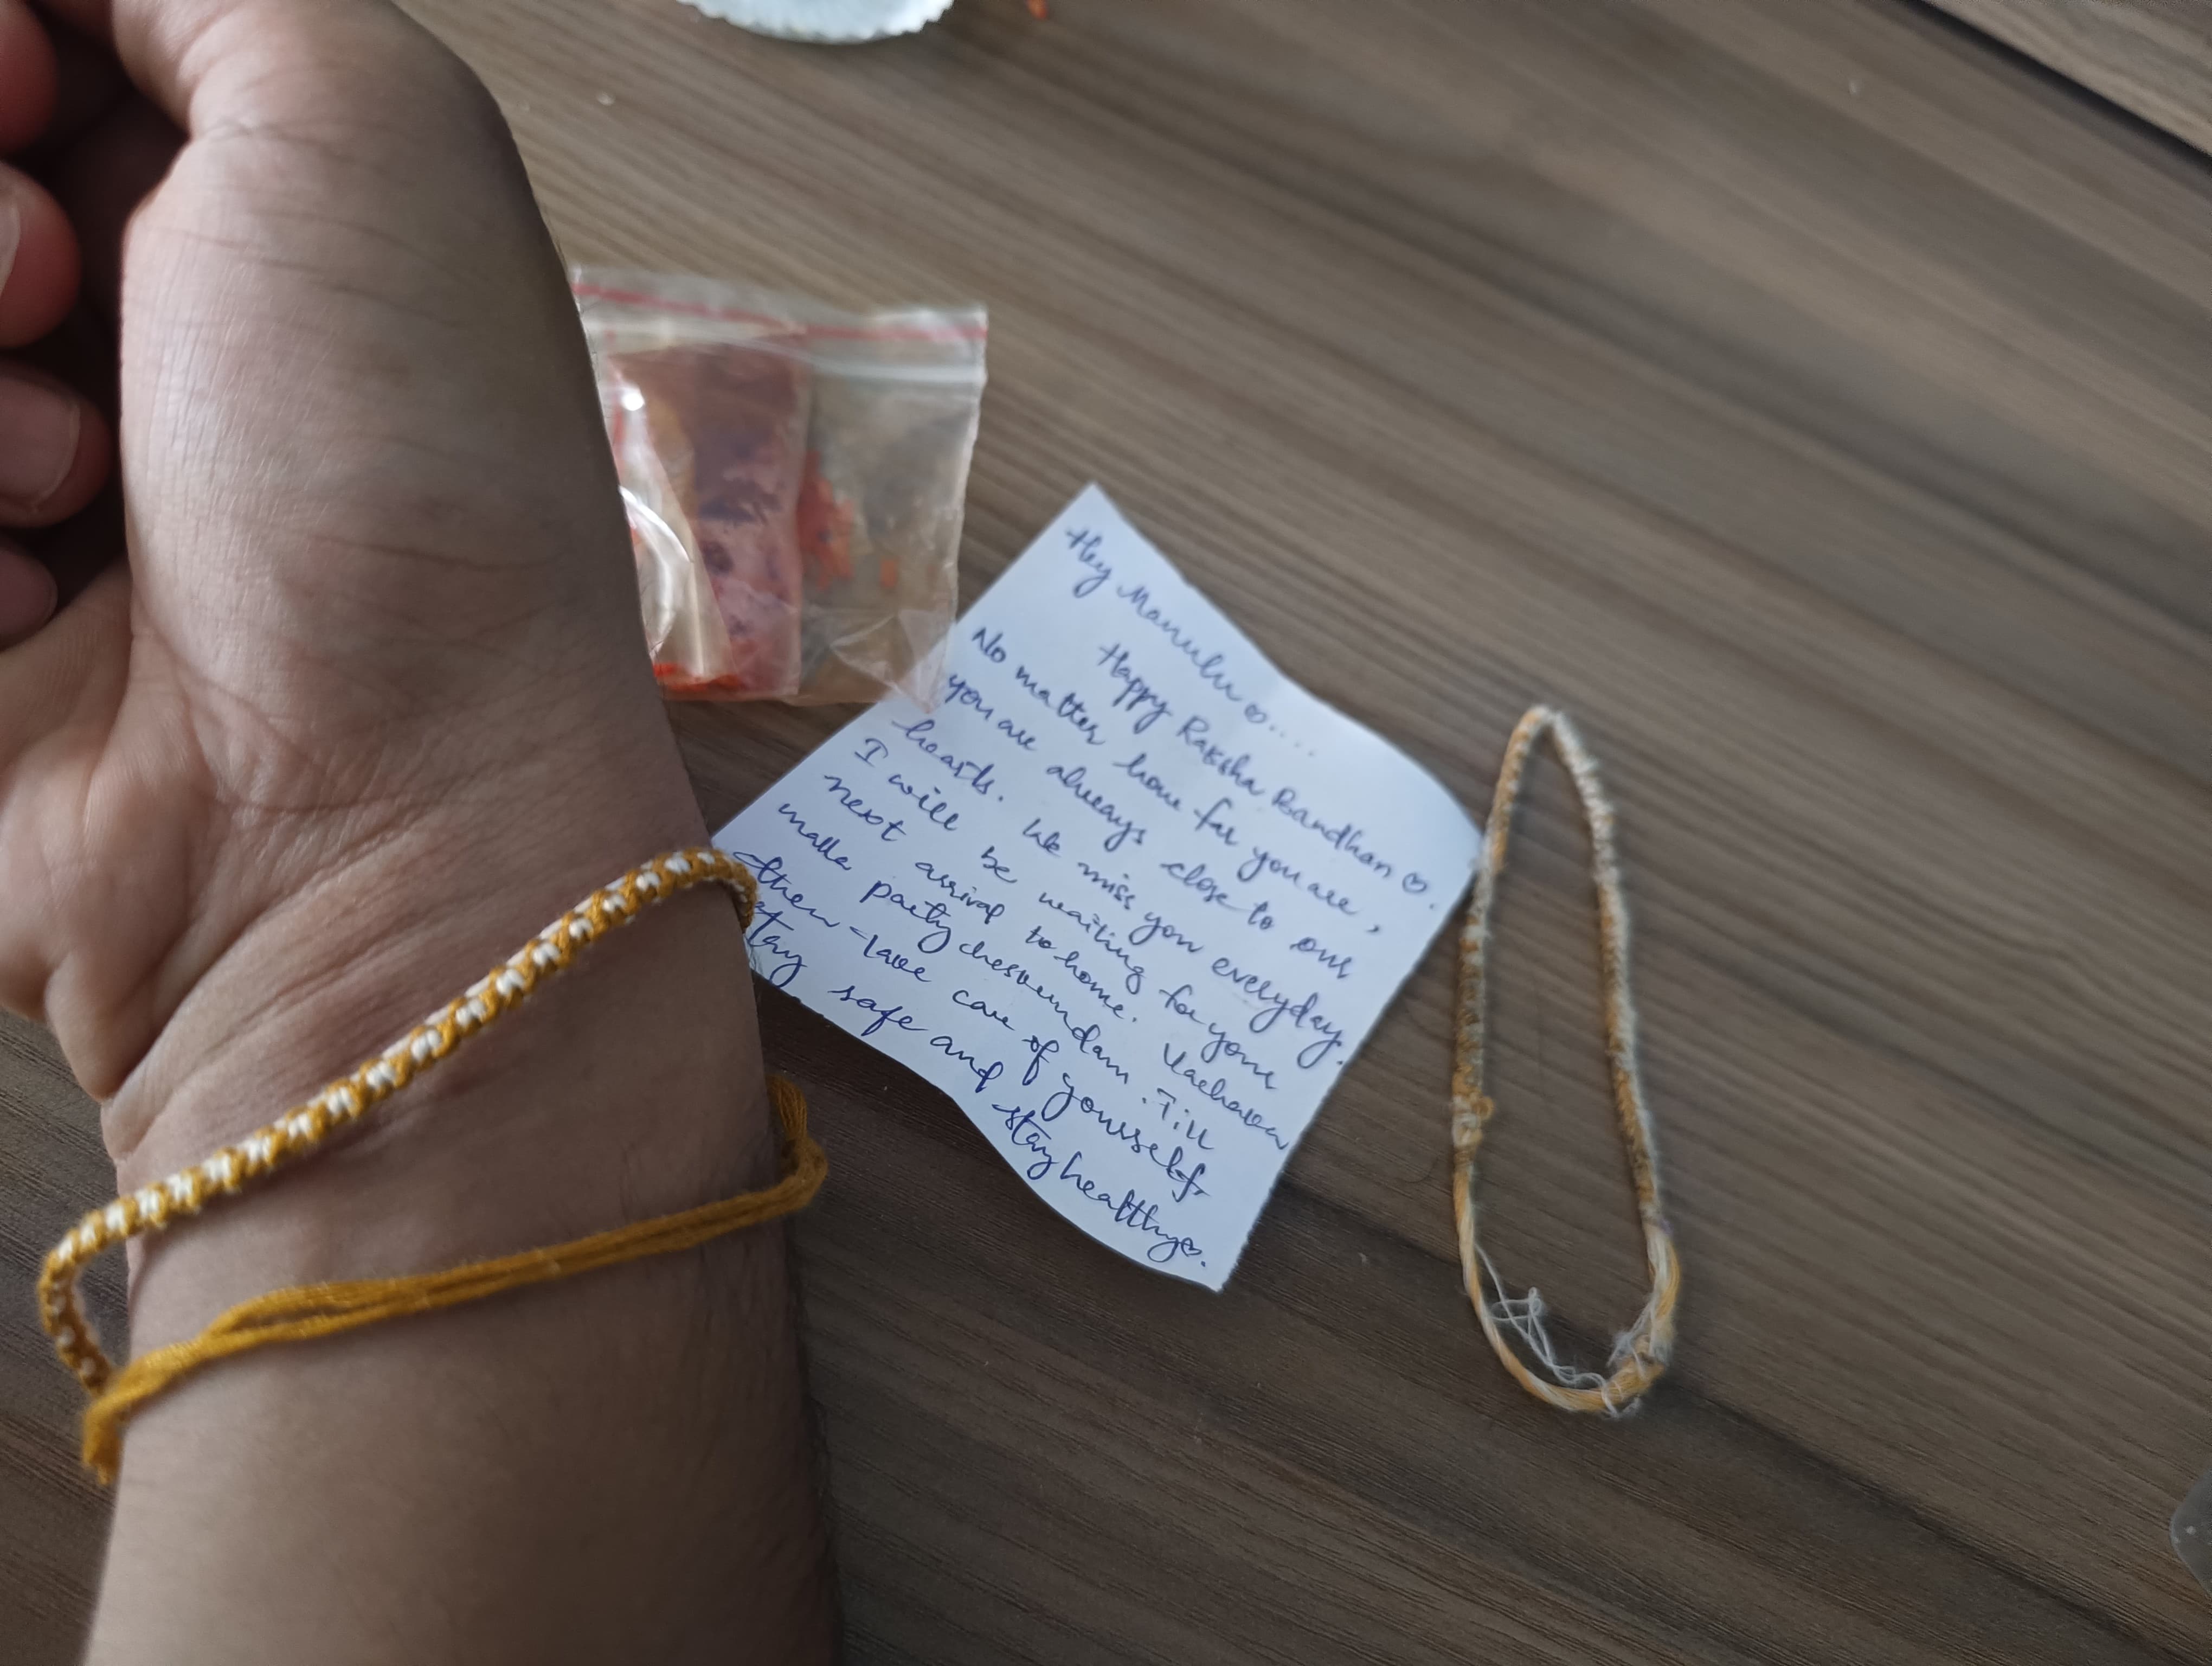 Hey Manulu ♡....
Happy Raksha Bandhan ♡.
No matter how far you are,
you are always close to our
hearts. We miss you everyday.
I will be waiting for your
next arrival to home. Vachaka
malla party chesukundam. Till
then take care of yourself,
stay safe and stay healthy♡.